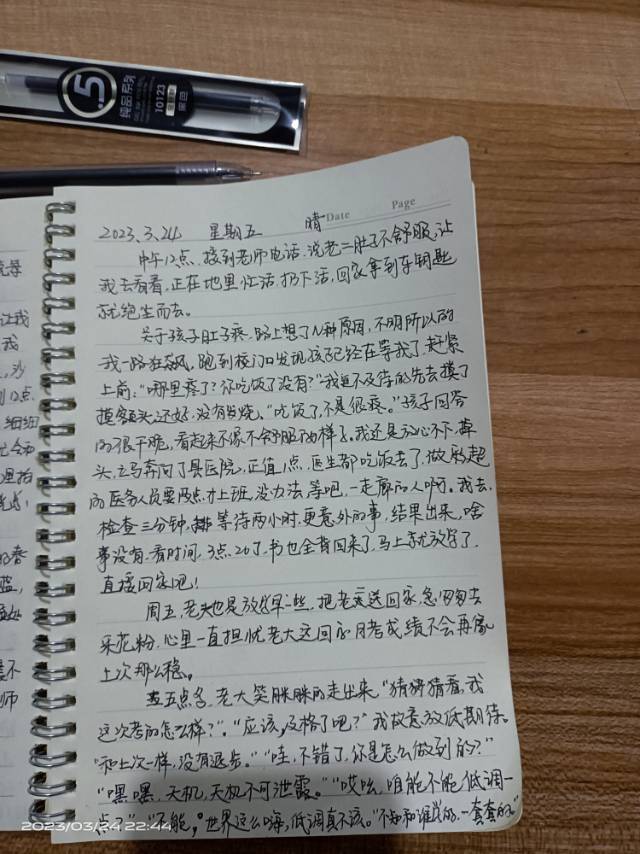 .5
纯品系列
10123
黑色
Date Page
2023.3.24 星期五 晴
中午12点,接到老师电话,说老二肚子不舒服,让
我去看看,正在地里忙活,扔下活,回家拿到车钥匙
就绝尘而去。
关于孩子肚子疼,路上想了N种原因,不明所以的
我一路狂飙,跑到校门口发现孩子已经在等我了,赶紧
上前:"哪里疼了?你吃饭了没有?"我迫不及待的先去摸了
摸额头,还好,没有发烧。"吃饭了,不是很疼。"孩子回答
的很干脆,看起来不像不舒服的样子。我还是放心不下,掉
头,立马奔向了县医院,正值1点,医生都吃饭去了,做彩超
的医务人员要两点才上班,没办法,等吧,一走廊的人啊。我去,
检查三分钟,排等待两小时,更意外的事,结果出来,啥
事没有,看时间,3点20了,书也全背回来了,马上就放学了,
直接回家吧!
周五,老大也是放学早一些,把老二送回家,急匆匆去
采花粉,心里一直担忧老大这回的月考成绩不会再像
上次那么稳。
五点多,老大笑眯眯的走出来,"猜猜猜看,我
这次考的怎么样?"。"应该,及格了吧?"我故意放低期待。
"和上次一样,没有退步。""哇,不错了,你是怎么做到的?"
"嘿嘿,天机,天机不可泄露。""哎吆,咱能不能低调一
点?""不能,世界这么嗨,低调真不该。""不知和谁学的,一套套的。"
2023/03/24 22:44